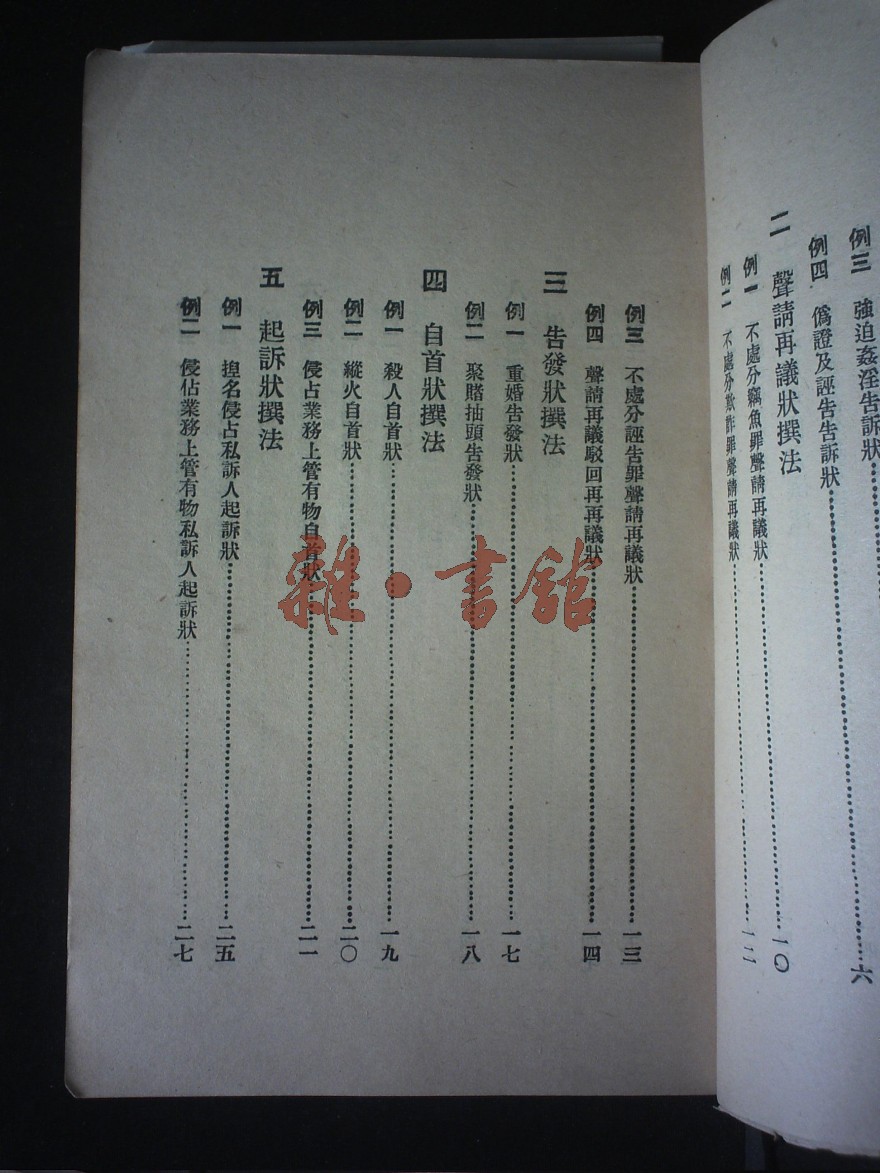 例三 強迫姦淫告訴狀……六
例四 僞證及誣告告訴狀
二 聲請再議狀撰法……一〇
例一 不處分竊魚罪聲請再議狀……一二
例二 不處分欺詐罪聲請再議狀
例三 不處分誣告罪聲請再議狀……一三
例四 聲請再議駁回再再議狀……一四
三 告發狀撰法
例一 重婚告發狀……一七
例二 聚賭抽頭告發狀……一八
四 自首狀撰法
例一 殺人自首狀……一九
例二 縱火自首狀……二〇
例三 侵占業務上管有物自首狀……二一
五 起訴狀撰法
例一 揑名侵占私訴人起訴狀……二五
例二 侵佔業務上管有物私訴人起訴狀……二七
雜·書館